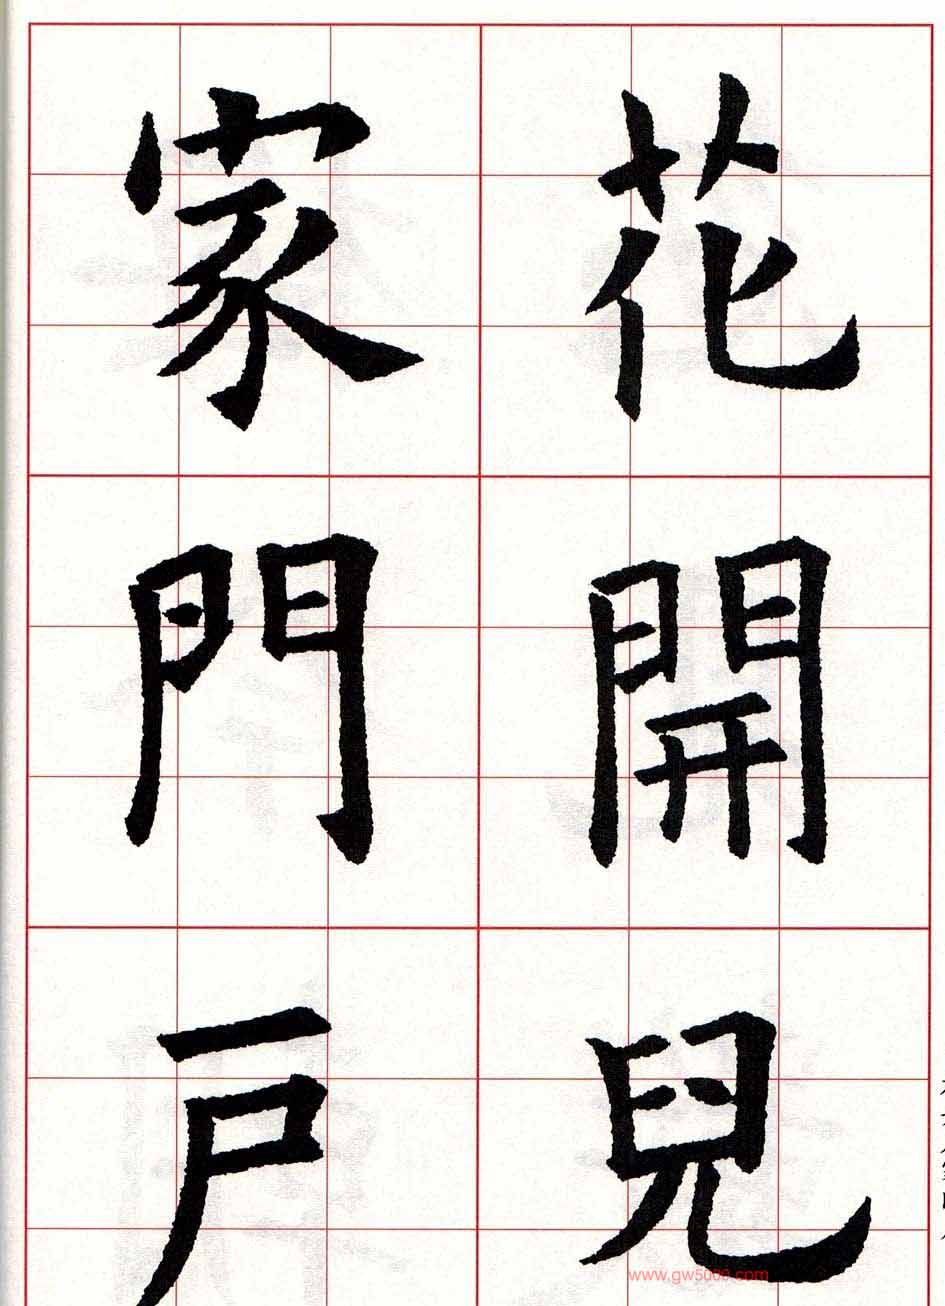 花開兒
家門戶
www.gw5000.com